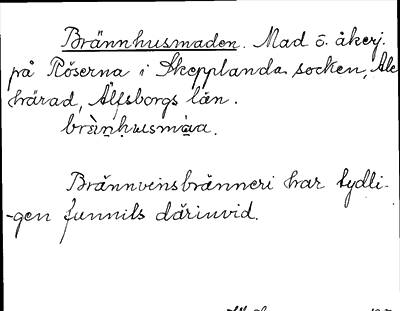 Brännhusmaden. Mad ö. åkerj.
på Röserna i Skepplanda socken, Ale
härad, Älfsborgs län.
bränhusmáa.
Brännvinsbränneri har tydli-
-gen funnits därinvid.